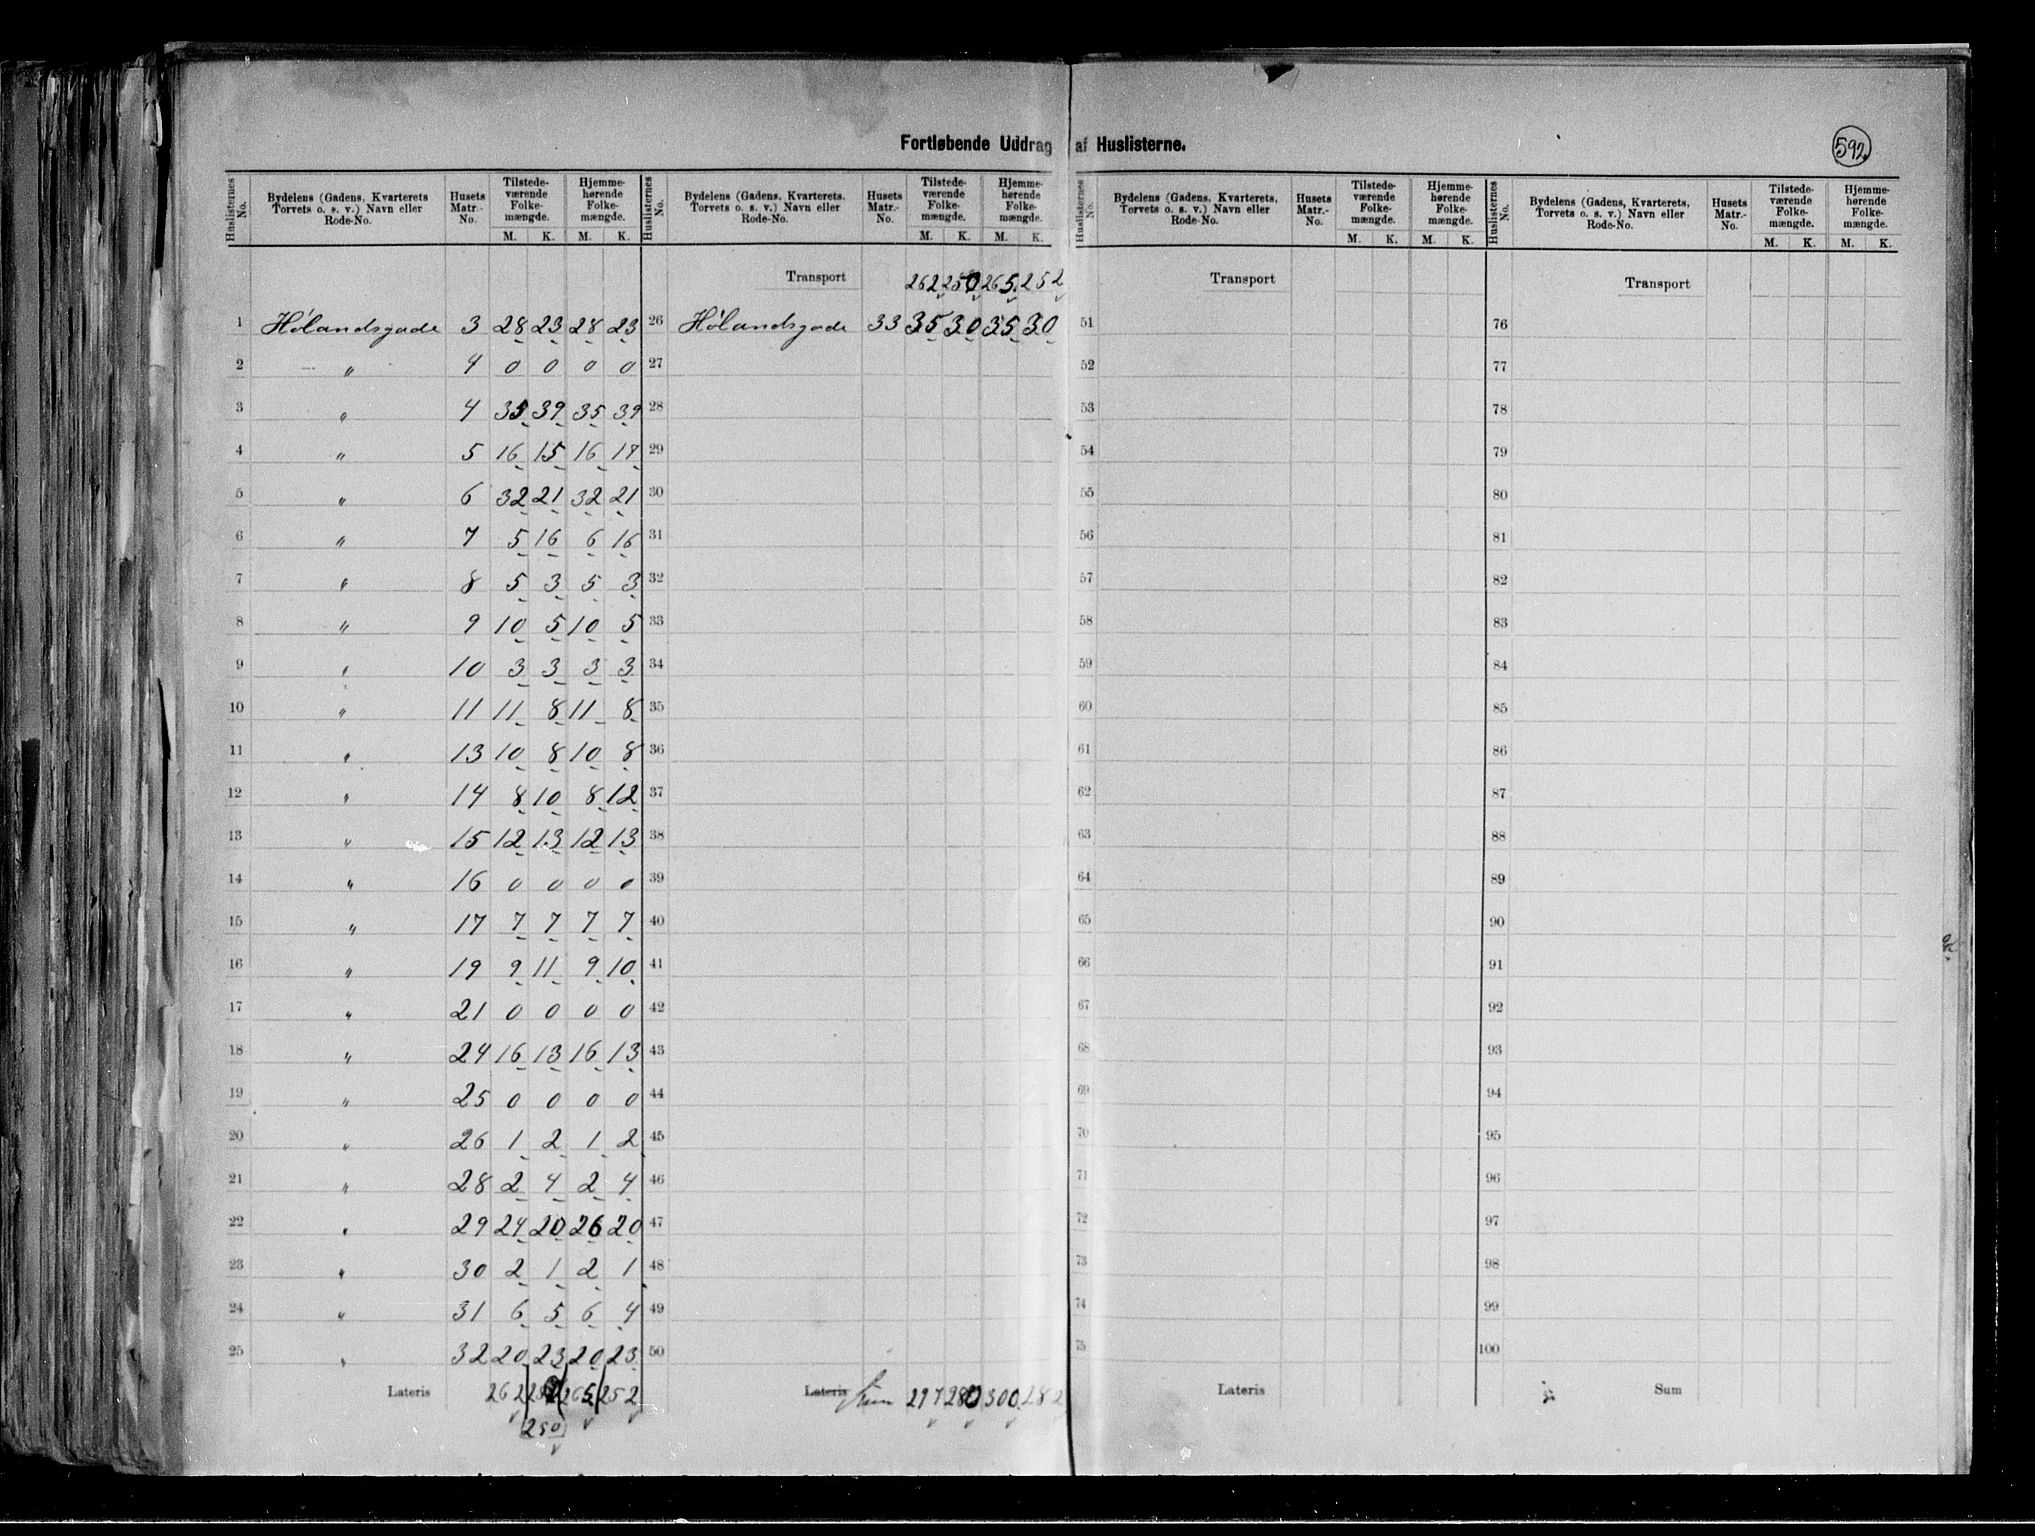 Fortløbende Uddrag af Huslisterne.
592
Huslisternes No. Bydelens (Gadens, Kvarterets Torvets o. s. v.) Navn eller Rode-No. Husets Matr.-No. Tilstedeværende Folkemængde. M. K. Hjemmehørende Folkemængde. M. K.
1 Hølandsgade 3 28 23 28 23
2 " 4 0 0 0 0
3 " 4 35 39 35 39
4 " 5 16 15 16 17
5 " 6 32 21 32 21
6 " 7 5 16 6 16
7 " 8 5 3 5 3
8 " 9 10 5 10 5
9 " 10 3 3 3 3
10 " 11 11 8 11 8
11 " 13 10 8 10 8
12 " 14 8 10 8 12
13 " 15 12 13 12 13
14 " 16 0 0 0 0
15 " 17 7 7 7 7
16 " 19 9 11 9 10
17 " 21 0 0 0 0
18 " 24 16 13 16 13
19 " 25 0 0 0 0
20 " 26 1 2 1 2
21 " 28 2 4 2 4
22 " 29 24 20 26 20
23 " 30 2 1 2 1
24 " 31 6 5 6 4
25 " 32 20 23 20 23
Lateris 262 265 252
250
Huslisternes No. Bydelens (Gadens, Kvarterets, Torvets o. s. v.) Navn eller Rode-No. Husets Matr.-No. Tilstedeværende Folkemængde. M. K. Hjemmehørende Folkemængde. M. K.
Transport 262 250 265 252
26 Hølandsgade 33 35 30 35 30
27
28
29
30
31
32
33
34
35
36
37
38
39
40
41
42
43
44
45
46
47
48
49
50
Lateris Sum 297 280 300 282
Huslisternes No. Bydelens (Gadens, Kvarterets, Torvets o. s. v.) Navn eller Rode-No. Husets Matr.-No. Tilstedeværende Folkemængde. M. K. Hjemmehørende Folkemængde. M. K.
Transport
51
52
53
54
55
56
57
58
59
60
61
62
63
64
65
66
67
68
69
70
71
72
73
74
75
Lateris
Huslisternes No. Bydelens (Gadens, Kvarterets, Torvets o. s. v.) Navn eller Rode-No. Husets Matr.-No. Tilstedeværende Folkemængde. M. K. Hjemmehørende Folkemængde. M. K.
Transport
76
77
78
79
80
81
82
83
84
85
86
87
88
89
90
91
92
93
94
95
96
97
98
99
100
Sum